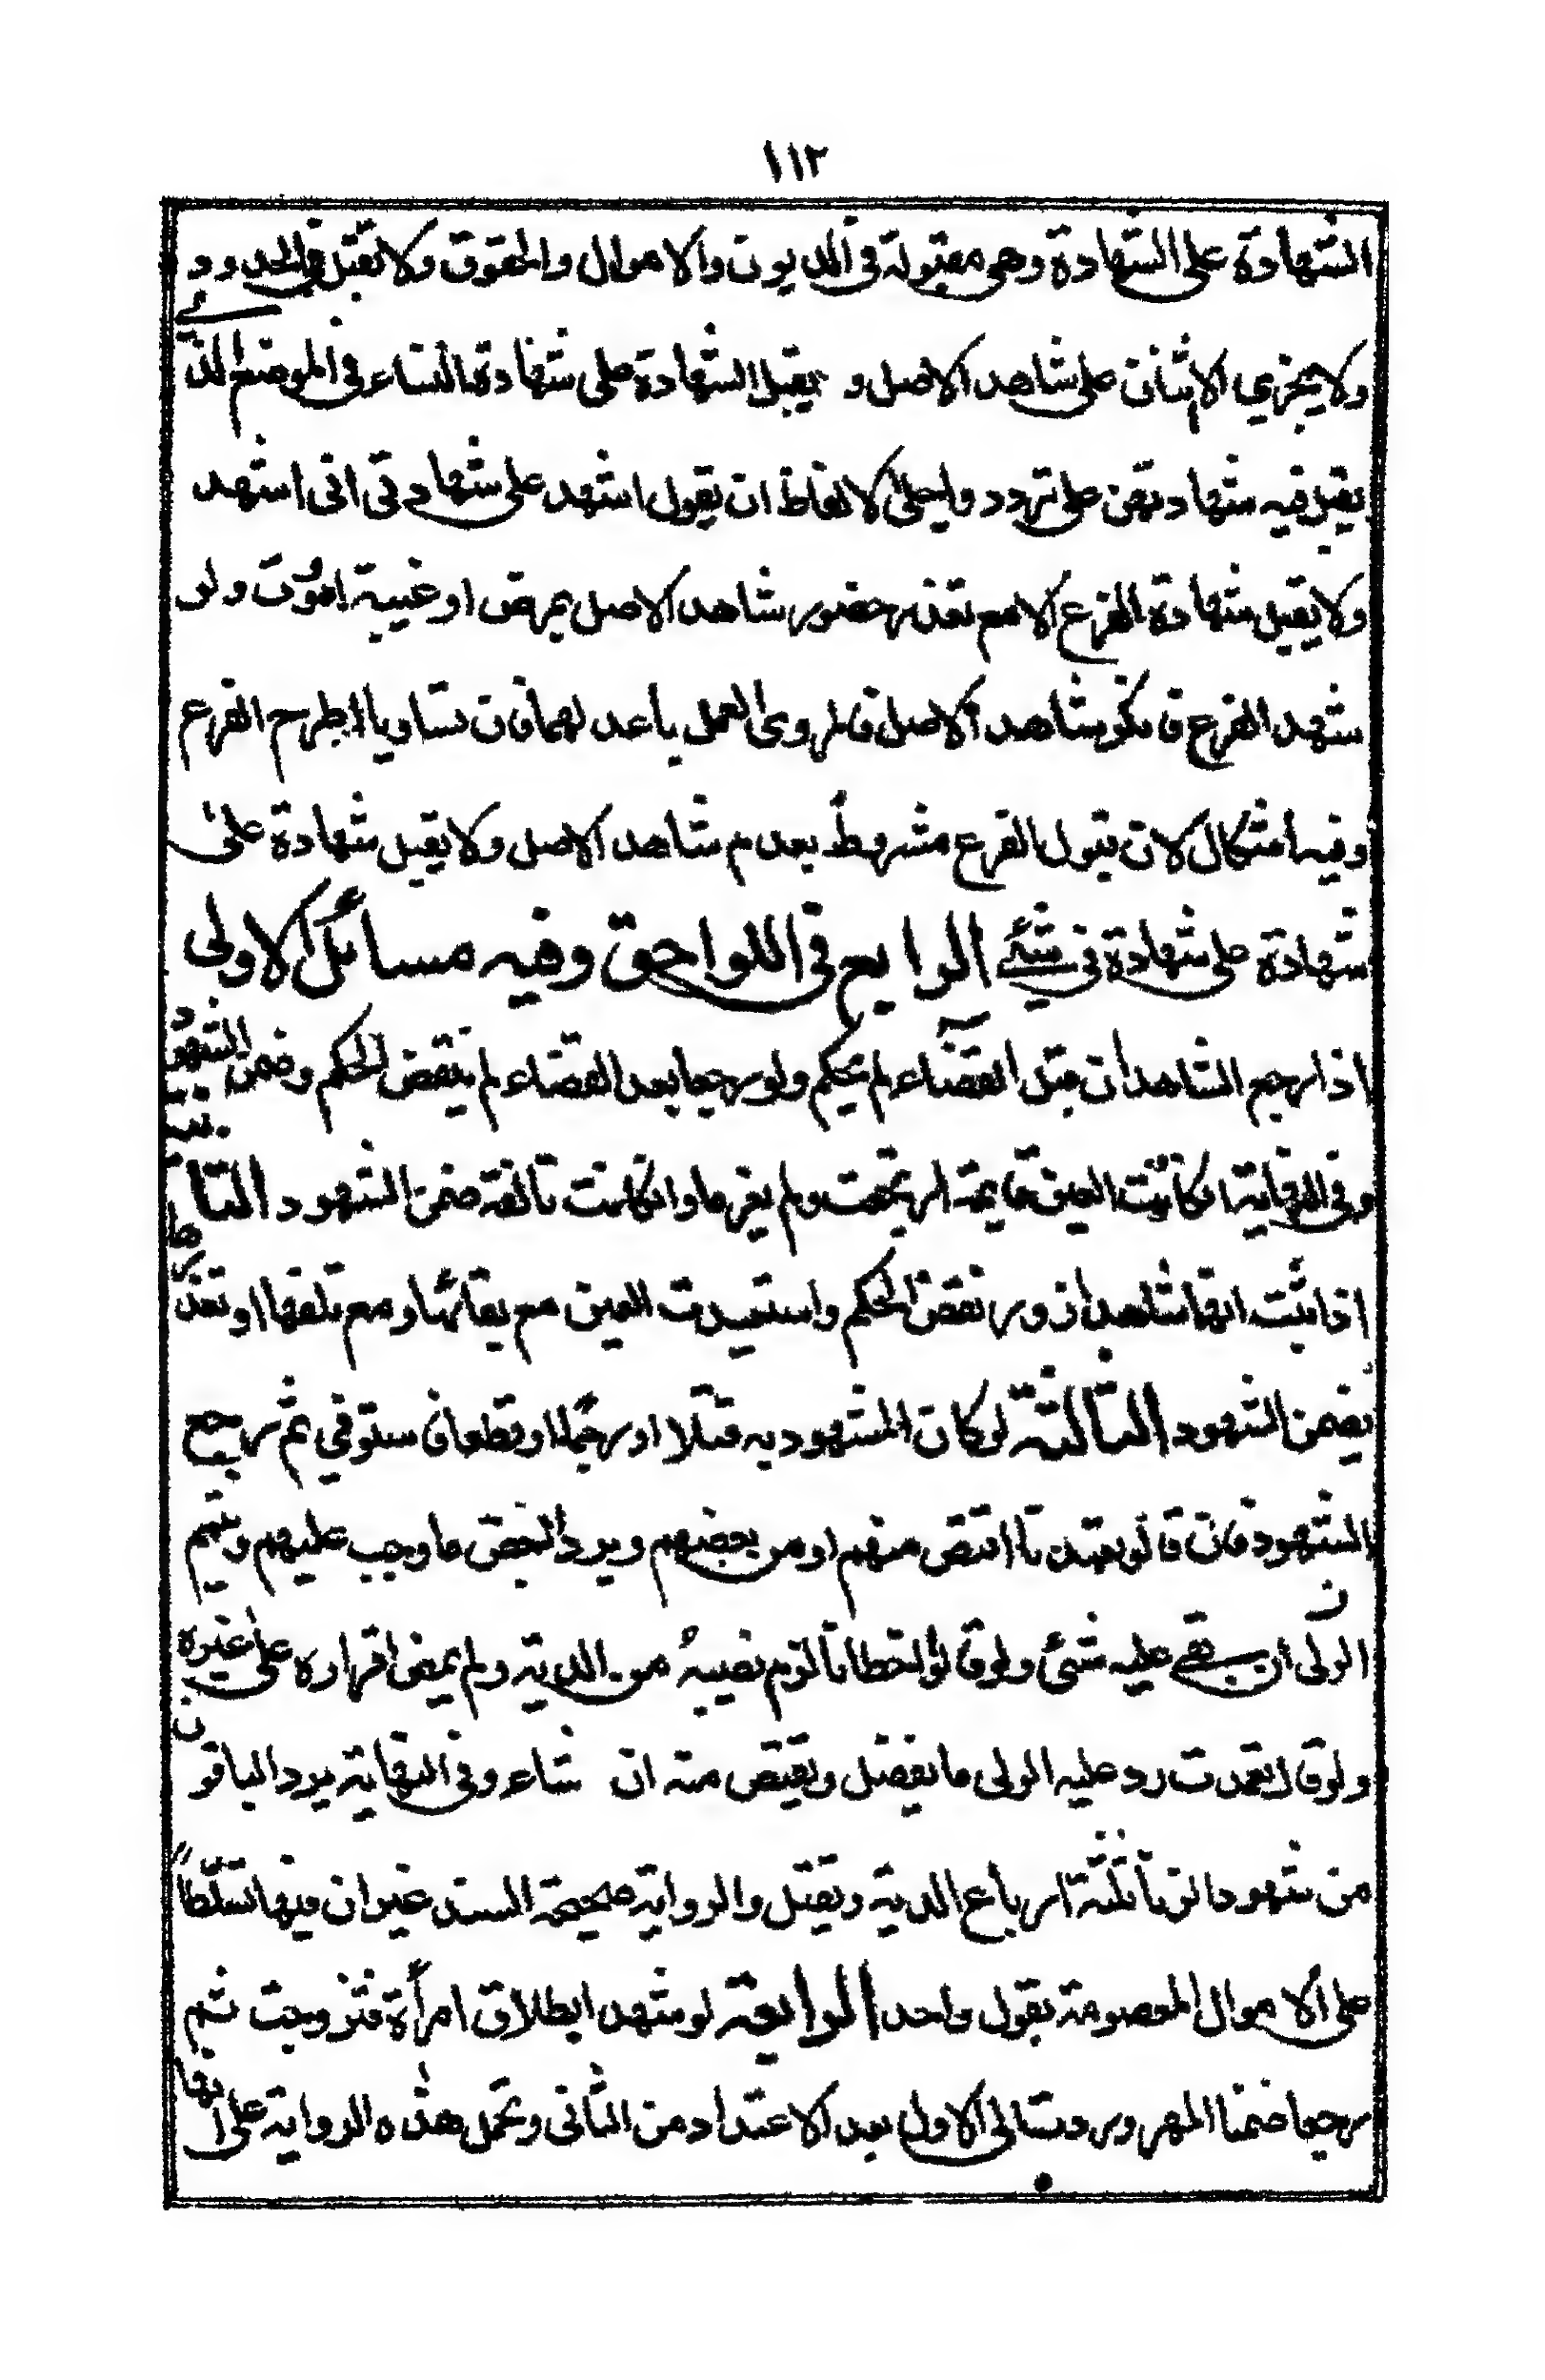 ١١٢
الشهادة على الشهادة وهي مقبولة في الديون والاموال والحقوق ولا تقبل في الحدود
ولا يجزي الا اثنان على شاهد الاصل و يقبل الشهادة على شهادة النساء في الموضع الذي
يقبل فيه شهادتهن على تردد واجلى الالفاظ ان يقول اشهد على شهادتي اني اشهد
ولا يقبل شهادة الفرع الا مع تعذر حضور شاهد الاصل بمرض او غيبة اموت ولو
شهد الفرع فانكر شاهد الاصل فالمروي العمل باعدلهما فان تساويا اطرح الفرع
وفيه اشكال لان قبول الفرع مشروط بعدم شاهد الاصل ولا يقبل شهادة على
شهادة على شهادة في شئ الرابع في اللواحق وفيه مسائل الاولى
اذا رجع الشاهدان قبل القضاء لم يحكم ولو رجعا بعد القضاء لم ينقض الحكم وضمن الشهود
وفي النهاية ان كانت العين قايمة ارتجعت ولم يغرما وان كانت تالفة ضمن الشهود الثانية
اذا ثبت انهما شاهدا زور نقض الحكم واستعيدت العين مع بقائها ومع تلفها او تعذر
يضمن الشهود الثالثة لو كان المشهود به قتلا او رجما او قطعا فاستوفي ثم رجع
الشهود فان قالو تعمدنا اقتص منهم او من بعضهم ويرد البعض ما وجب عليهم ويتم
الولى ان بقى عليه شئ ولو قالو اخطانا لزم نصيبه من الدية ولم يمض اقراره على غيره
ولو قال تعمدت رد عليه الولى ما يفضل ويقتص منه ان شاء وفي النهاية يرد الباقون
من شهود الزنا ثلثة ارباع الدية ويقتل والرواية صحيحة السند غير ان فيها تسلطا
على الاموال المعصومة بقول واحد الرابعة لو شهدا بطلاق امرأة فتزوجت ثم
رجعا ضمنا المهر وردت الى الاول بعد الاعتداد من الثاني وتحمل هذه الرواية على انها